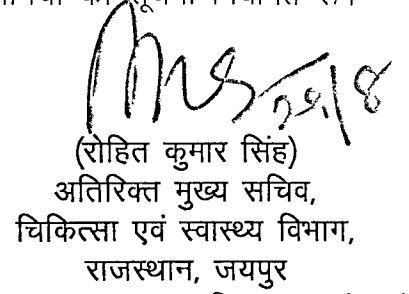 29/8
(रोहित कुमार सिंह)
अतिरिक्त मुख्य सचिव,
चिकित्सा एवं स्वास्थ्य विभाग,
राजस्थान, जयपुर